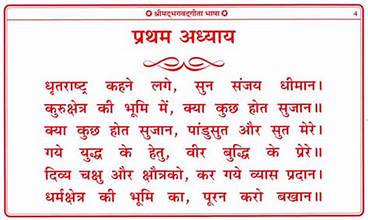 श्रीमद्भगवद्गीता भाषा
4
प्रथम अध्याय
धृतराष्ट्र कहने लगे, सुन संजय धीमान।
कुरुक्षेत्र की भूमि में, क्या कुछ होत सुजान॥
क्या कुछ होत सुजान, पांडुसुत और सुत मेरे।
गये युद्ध के हेतु, वीर बुद्धि के प्रेरे॥
दिव्य चक्षु और क्षौत्रको, कर गये व्यास प्रदान।
धर्मक्षेत्र की भूमि का, पूरन करो बखान॥